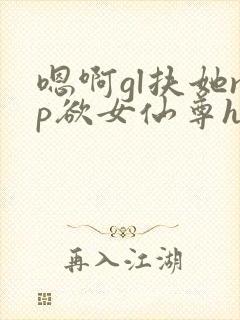 嗯啊gl扶她n
p欲女仙尊h
再入江湖